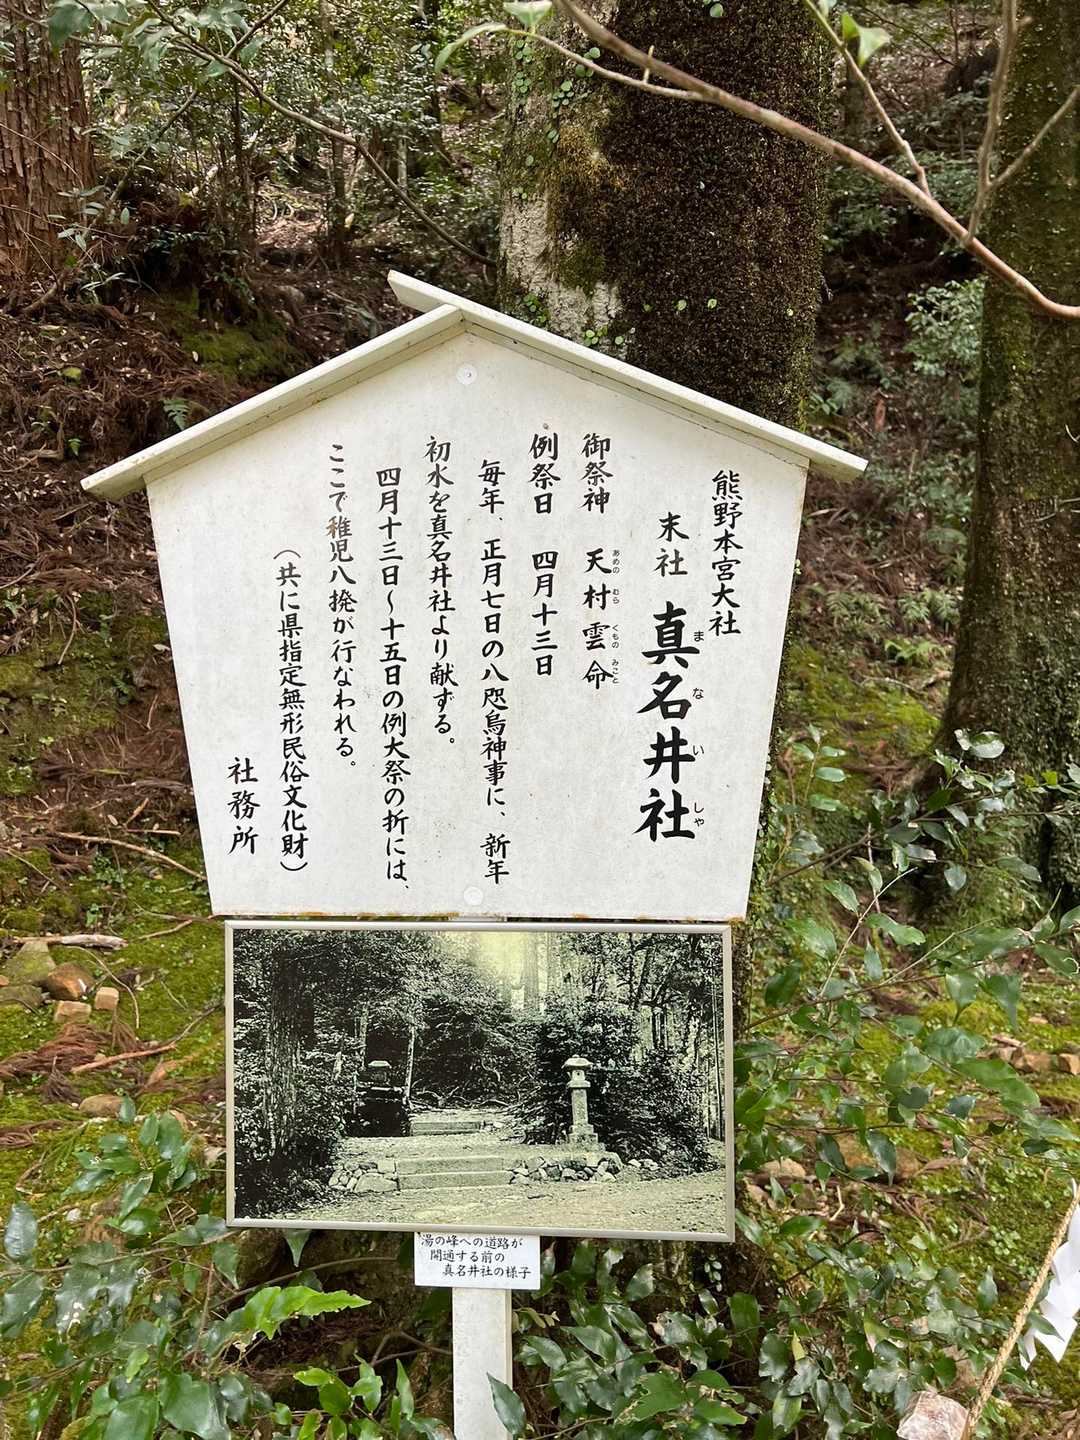 熊野本宮大社
末社 真名井社
まないしや
御祭神 天村雲命
あめの むら くもの みこと
例祭日 四月十三日
毎年、正月七日の八咫烏神事に、新年
初水を真名井社より献ずる。
四月十三日〜十五日の例大祭の折には、
ここで稚児八撥が行なわれる。
(共に県指定無形民俗文化財)
社務所
湯の峰への道路が
開通する前の
真名井社の様子